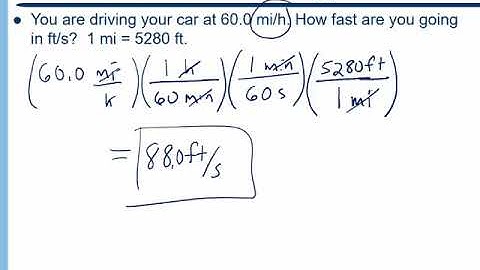 • You are driving your car at 60.0 mi/h. How fast are you going
in ft/s? 1 mi = 5280 ft.
(60.0 mi/h)(1 h/60 min)(1 min/60 s)(5280 ft/1 mi)
= 88.0 ft/s